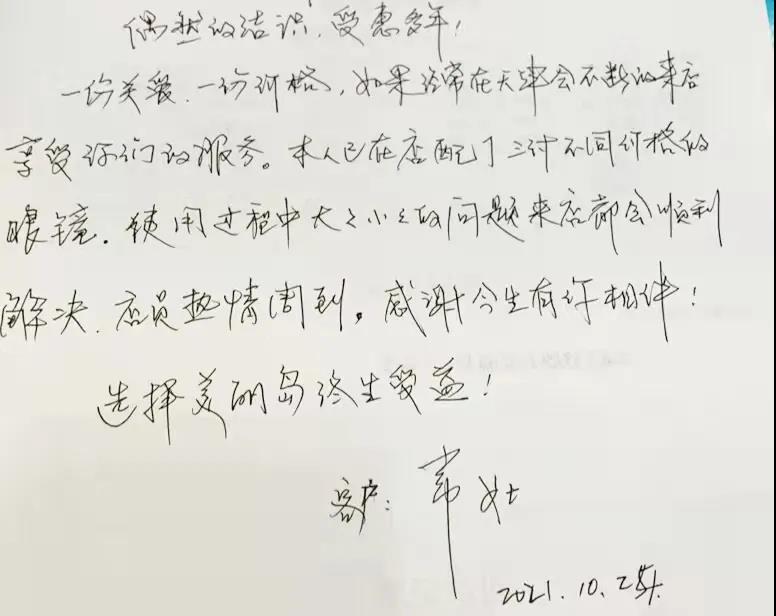 偶然的结识,受惠多年!
一份关爱、一份价格,如果经常在天津会不断的来店
享受你们的服务。本人已在店配了三付不同价格的
眼镜.使用过程中大大小小的问题来店都会顺利
解决.店员热情周到。感谢今生有你相伴!
选择美丽岛终生受益!
客户:
2021.10.